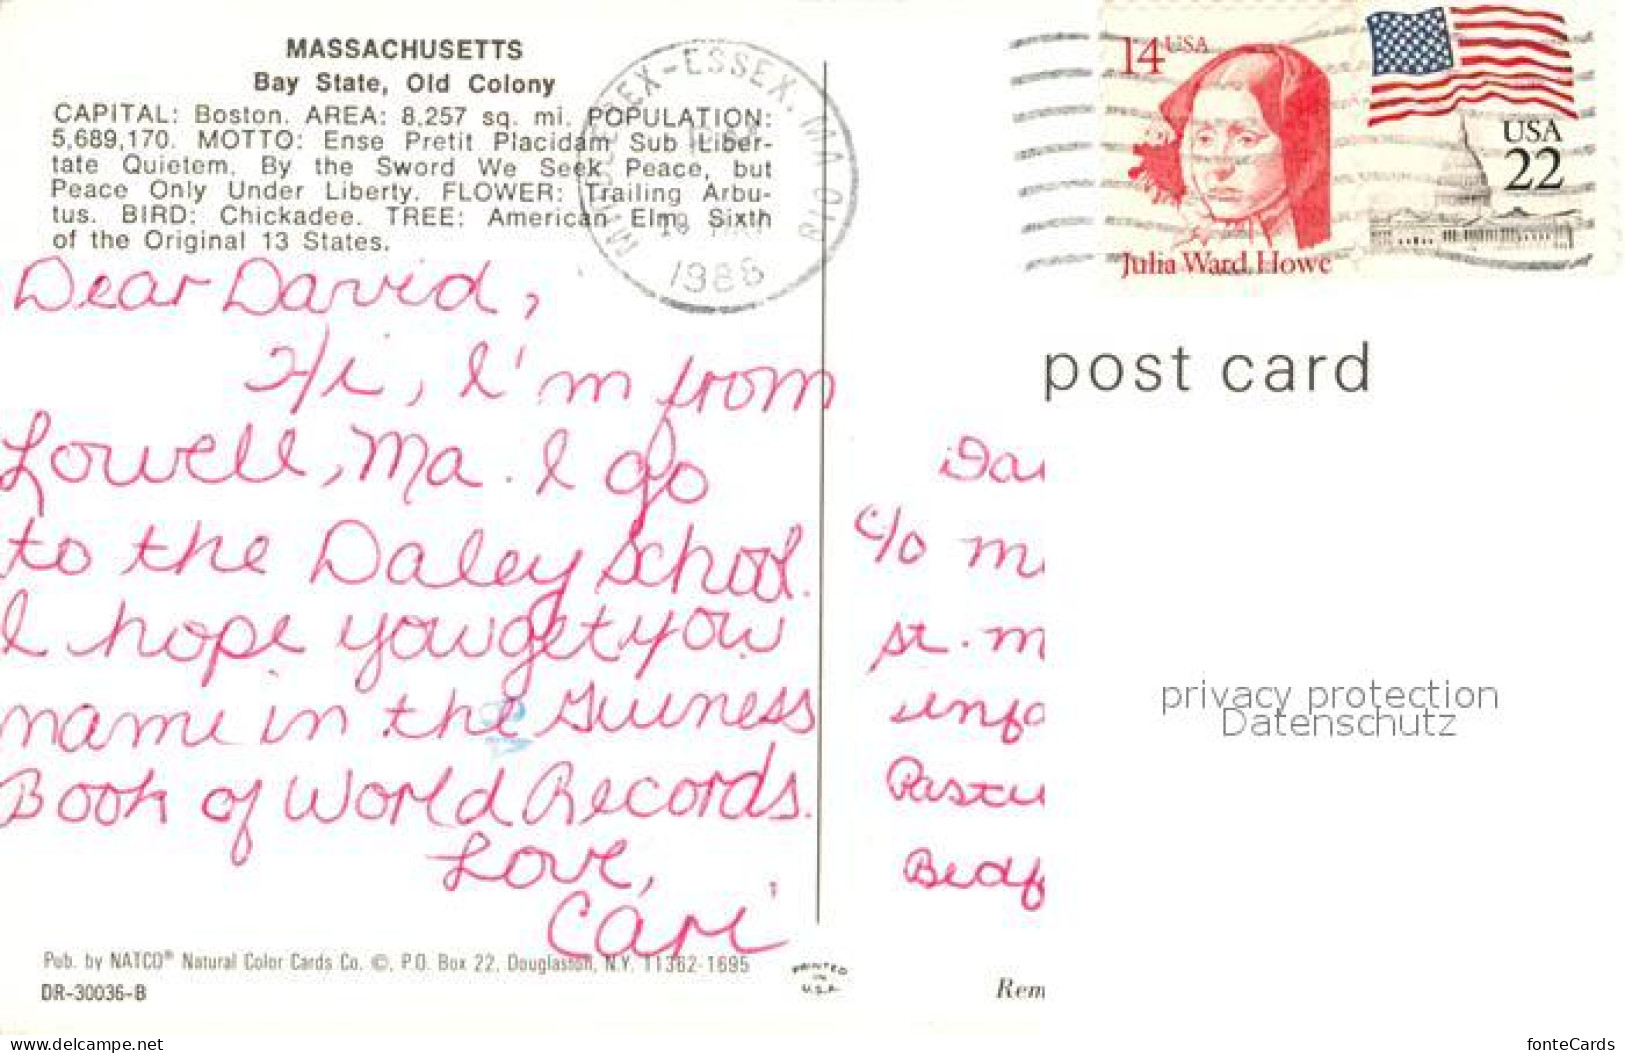 MASSACHUSETTS
Bay State, Old Colony
CAPITAL: Boston. AREA: 8,257 sq. mi. POPULATION:
5,689,170. MOTTO: Ense Pretit Placidam Sub Liber-
tate Quietem. By the Sword We Seek Peace, but
Peace Only Under Liberty. FLOWER: Trailing Arbu-
tus. BIRD: Chickadee. TREE: American Elm. Sixth
of the Original 13 States.
MIDDLESEX-ESSEX, MA 018
1986
14 USA
Julia Ward Howe
USA
22
Dear David,
Hi, I'm from
Lowell, Ma. I go
to the Daley School.
I hope you get you
name in the Guiness
Book of World Records.
Love,
Cari
post card
Da
c/o M
St. M
Info
Pastu
Bedf
privacy protection
Datenschutz
Pub. by NATCO® Natural Color Cards Co. ©, P.O. Box 22, Douglaston, N.Y. 11362-1695
DR-30036-B
PRINTED
IN
U.S.A.
Rem
www.delcampe.net
fonteCards